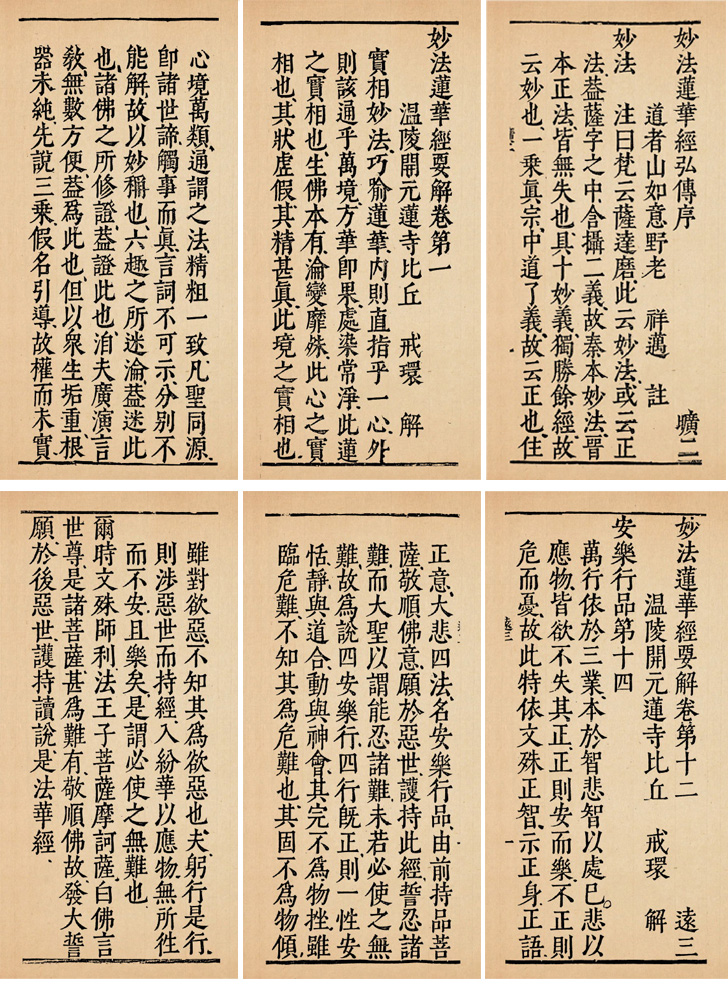 妙法蓮華經弘傳序
道者山如意野老　祥邁　註　曠二
妙法　注曰梵云薩達磨、此云妙法、或云正
法、葢薩字之中、含攝二義、故秦本妙法、晉
本正法、皆無失也、具十妙義、獨勝餘經、故
云妙也、一乗眞宗、中道了義、故云正也、住
妙法蓮華經要解卷第一
温陵開元蓮寺比丘　戒環　解
實相妙法、巧喻蓮華、内則直指乎一心、外
則該通乎萬境、方華卽果、處染常淨、此蓮
之實相也、生佛本有、淪變靡殊、此心之實
相也、其狀虛假、其精甚眞、此境之實相也、
心境萬類、通謂之法、精粗一致、凡聖同源、
卽諸世諦、觸事而眞、言詞不可示、分别不
能解、故以妙稱也、六趣之所迷淪、葢迷此
也、諸佛之所修證、葢證此也、洎夫廣演言
敎、無數方便、葢爲此也、但以衆生垢重、根
器未純、先說三乗、假名引導、故權而未實、
妙法蓮華經要解卷第十二
温陵開元蓮寺比丘　戒環　解　遠三
安樂行品第十四
萬行依於三業、本於智悲、智以處己。悲以
應物、皆欲不失其正、正則安而樂、不正則
危而憂、故此特依文殊正智、示正身、正語、
正意、大悲四法、名安樂行品、由前持品菩
薩敬順佛意、願於惡世、護持此經、誓忍諸
難、而大聖以謂能忍諸難、未若必使之無
難、故爲說四安樂行、四行旣正、則一性安
恬、靜與道合、動與神會、其完不爲物挫、雖
臨危難、不知其爲危難也、其固不爲物傾、
雖對欲惡、不知其爲欲惡也、夫躬行是行、
則涉惡世而持經、入紛華以應物、無所徃
而不安且樂矣、是謂必使之無難也、
爾時文殊師利、法王子菩薩摩訶薩、白佛言
世尊、是諸菩薩甚爲難有、敬順佛故、發大誓
願、於後惡世、護持讀說、是法華經、